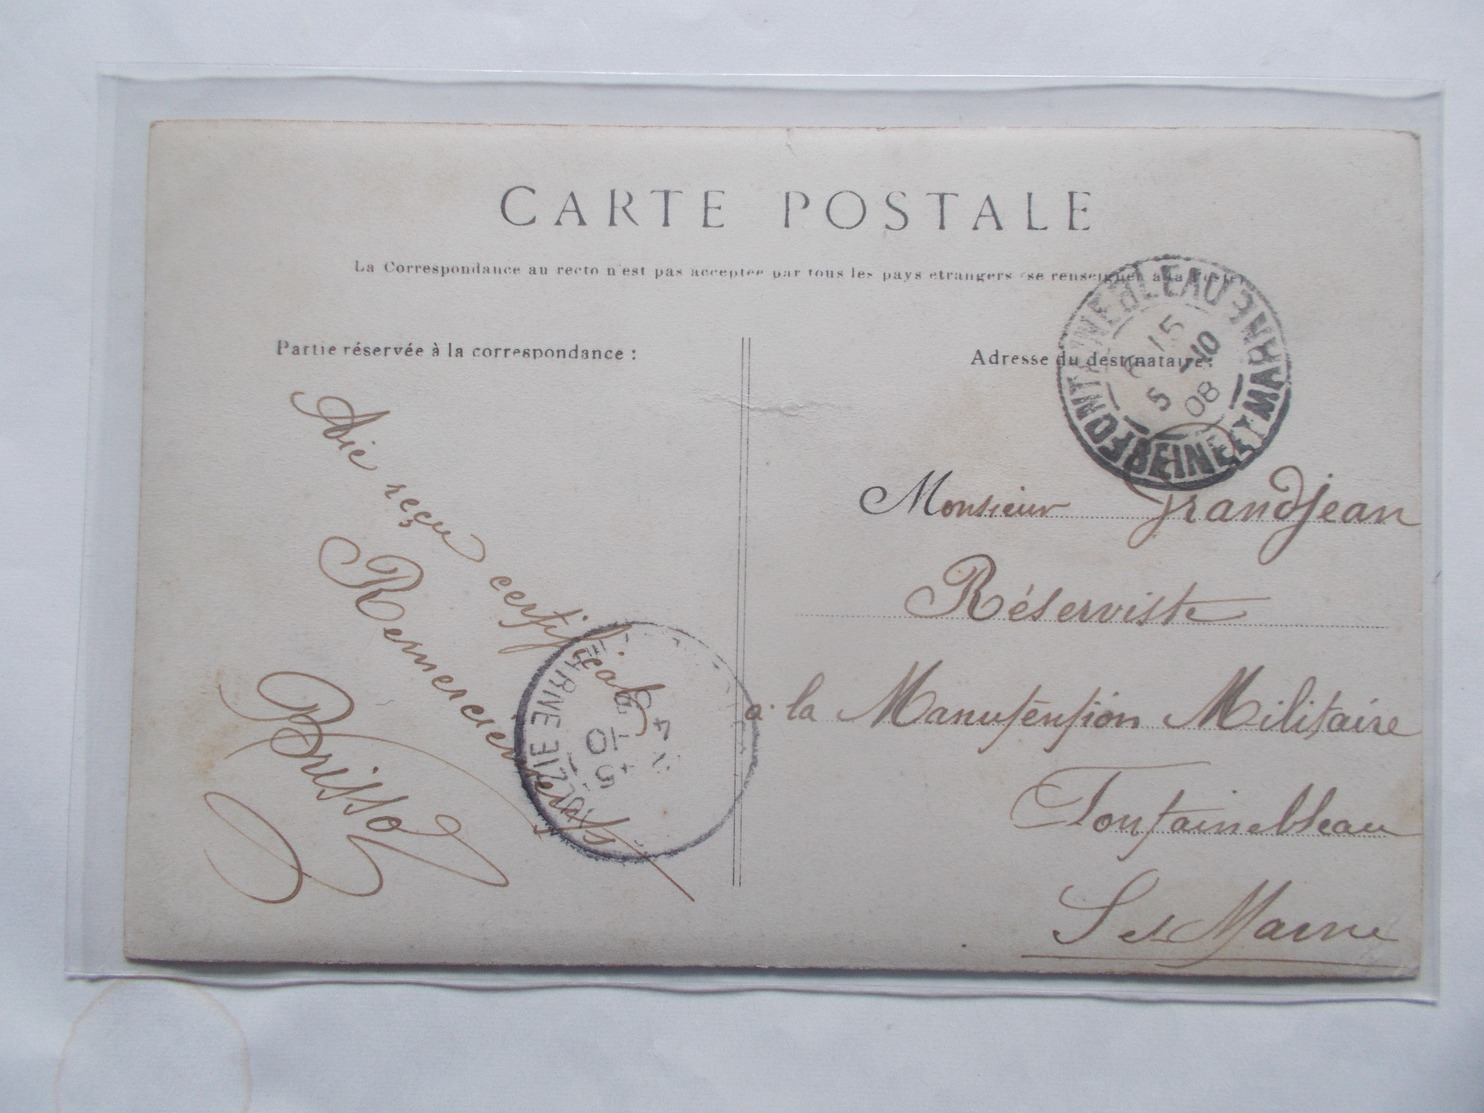 CARTE POSTALE
La Correspondance au recto n'est pas acceptée par tous les pays etrangers (se renseigner à la Poste)
Partie réservée à la correspondance :
Adresse du destinataire:
FONTAINEBLEAU
SEINE ET MARNE
15
5 -10
08
Aie reçu certificat
Remerciements
Brissot
MARNE
10
5
Monsieur Grandjean
Réserviste
a la Manutention Militaire
Fontainebleau
S et Marne